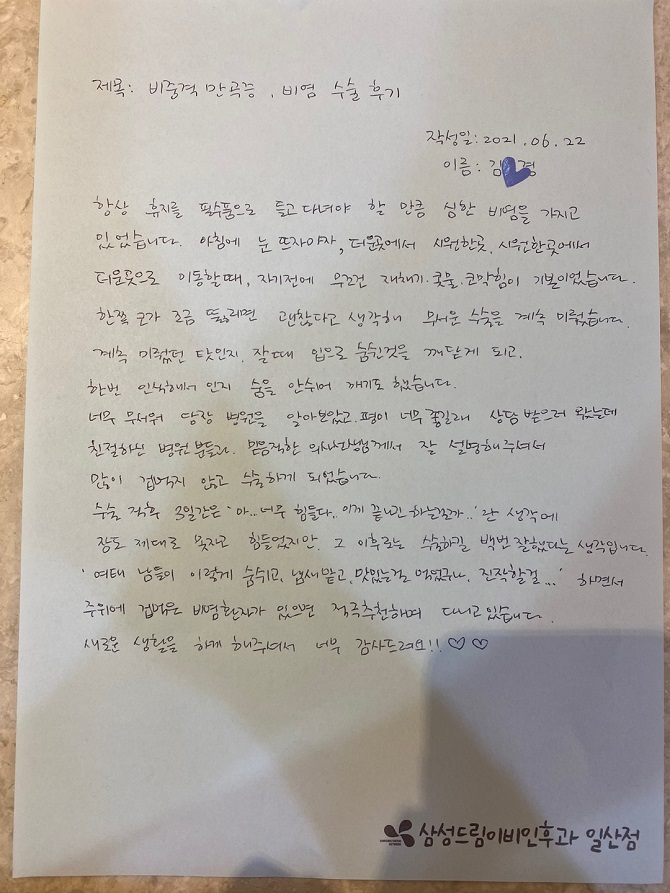 제목: 비중격 만곡증, 비염 수술 후기
작성일: 2021.06.22
이름: 김 경
항상 휴지를 필수품으로 들고다녀야 할 만큼 심한 비염을 가지고
있었습니다. 아침에 눈 뜨자마자, 더운곳에서 시원한곳, 시원한곳에서
더운곳으로 이동할때, 자기전에 무조건 재채기·콧물·코막힘이 기본이었습니다.
한쪽 코가 조금 뚫리면 괜찮다고 생각해 무서운 수술을 계속 미뤘습니다.
계속 미뤘던 탓인지, 잘때 입으로 숨쉰것을 깨닫게 되고,
한번 인식해서 인지 숨을 안쉬어 깨기도 했습니다.
너무 무서워 당장 병원을 알아보았고, 평이 너무 좋길래 상담 받으러 왔는데
친절하신 병원 분들과, 믿음직한 의사선생님께서 잘 설명해주셔서
많이 겁먹지 않고 수술하게 되었습니다.
수술 직후 3일간은 '아...너무 힘들다.. 이게 끝나긴 하는걸까..' 란 생각에
잠도 제대로 못자고 힘들었지만, 그 이후로는 수술하길 백번 잘했다는 생각입니다.
'여태 남들이 이렇게 숨쉬고, 냄새맡고, 맛있는걸 먹었구나, 진작할걸...' 하면서
주위에 겁먹은 비염환자가 있으면 적극추천하며 다니고있습니다.
새로운 생활을 하게 해주셔서 너무 감사드려요!! ♡ ♡
삼성드림이비인후과 일산점